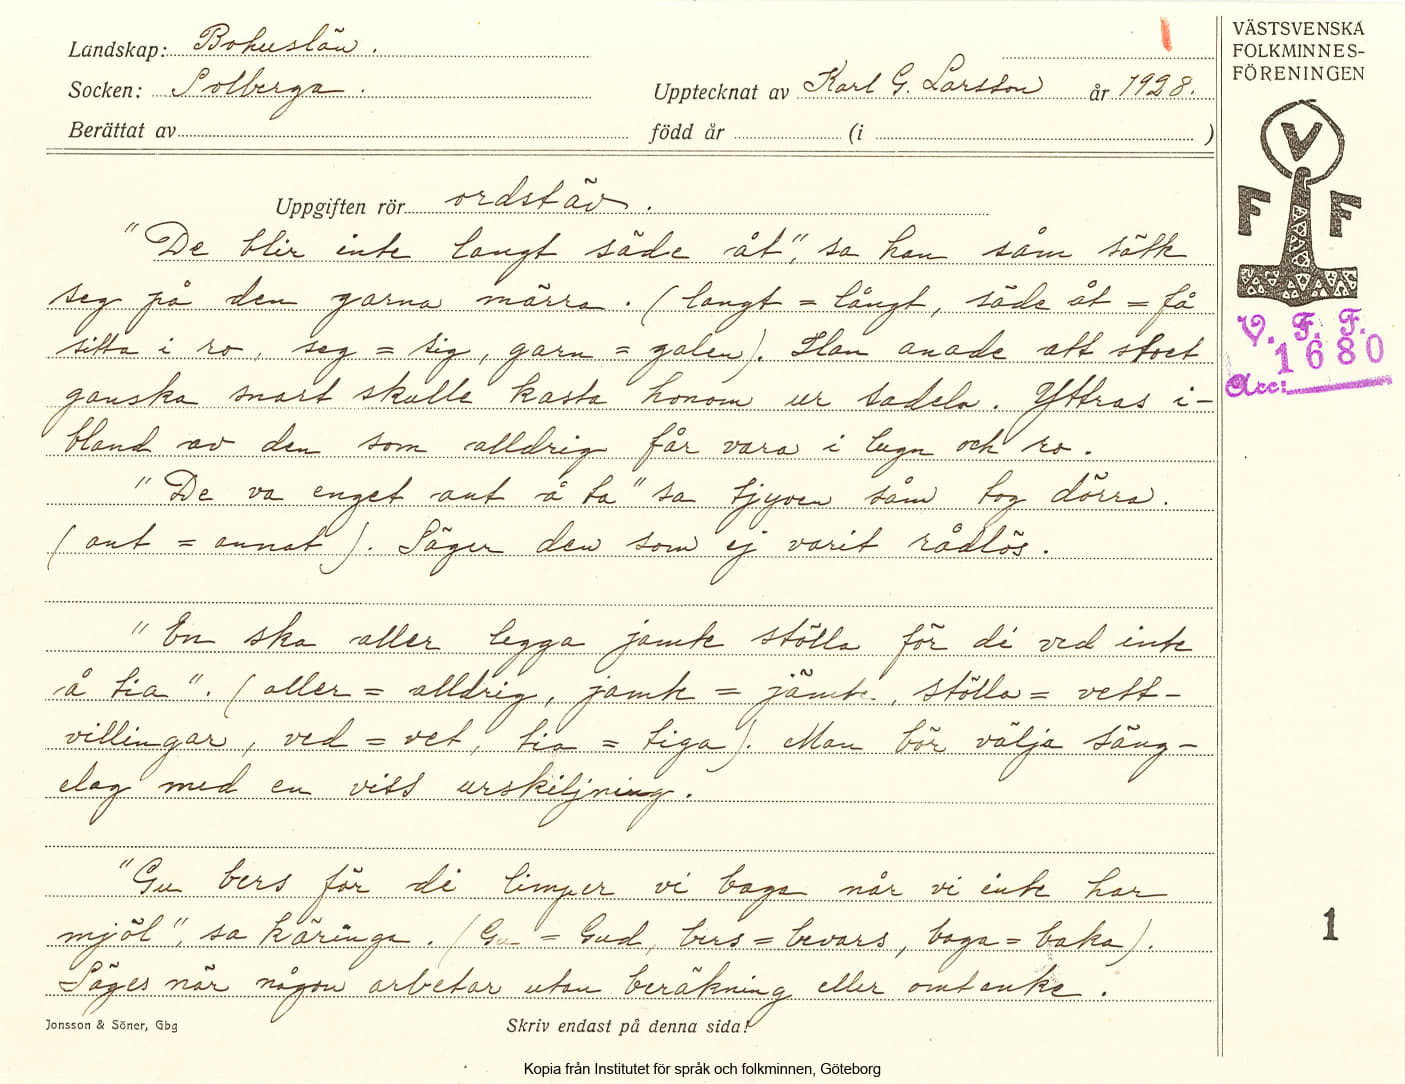 Landskap: Bohuslän.
Socken: Solberga.
Upptecknat av Karl G. Larsson år 1928.
Berättat av
född år (i )
Uppgiften rör ordstäv.
"De blir inte langt säde åt", sa han såm sätt
seg på den garna märra. (langt = långt, säde åt = få
sitta i ro, seg = sig, garn = galen). Han anade att stoet
ganska snart skulle kasta honom ur sadeln. Yttras i-
bland av den som alldrig får vara i lugn och ro.
"De va enget ant å ta" sa tjyven såm tog dörra.
(ant = annat). Säger den som ej varit rådlös.
"En ska aller legga jamte stölla för di ved inte
å tia". (aller = alldrig, jamte = jämte, stölla = vett-
villingar, ved = vet, tia = tiga). Man bör välja säng-
elag med en viss urskiljning.
"Gu bers för di limper vi baga når vi inte har
mjöl", sa käringa. (Gu = Gud, bers = bevars, baga = baka).
Säges när någon arbetar utan beräkning eller omtanke.
Jonsson & Söner, Gbg
Skriv endast på denna sida!
VÄSTSVENSKA
FOLKMINNES-
FÖRENINGEN
V
F F
V. F. F.
1680
Acc:
1
Kopia från Institutet för språk och folkminnen, Göteborg